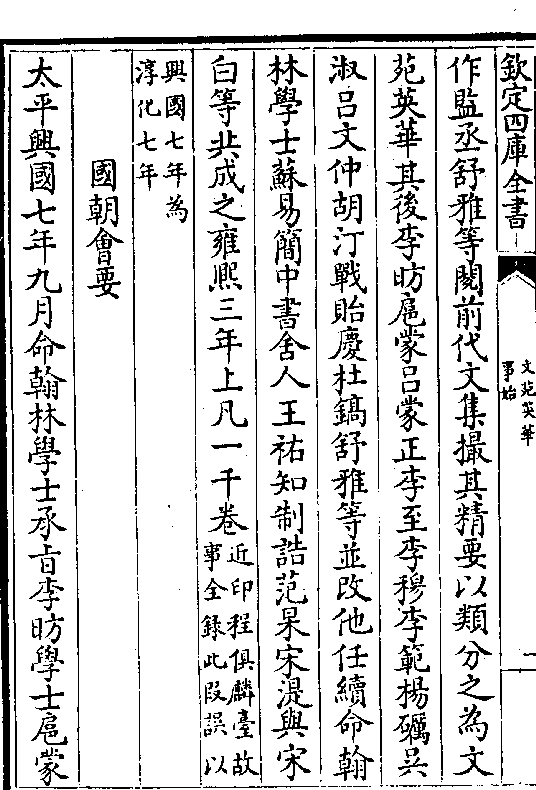 欽定四庫全書
文苑英華
事始
一
作監丞舒雅等閱前代文集撮其精要以類分之為文
苑英華其後李昉扈蒙呂蒙正李至李穆李範楊礪吳
淑呂文仲胡汀戰貽慶杜鎬舒雅等並改他任續命翰
林學士蘇易簡中書舍人王祐知制誥范杲宋湜與宋
白等共成之雍熙三年上凡一千卷近印程俱麟臺故
事全錄此段誤以
興國七年為
淳化七年
國朝會要
太平興國七年九月命翰林學士承旨李昉學士扈蒙